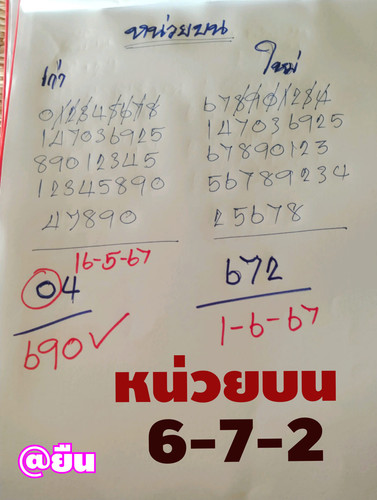 หน่วยบน
เก่า
012345678
147036925
89012345
12345890
47890
16-5-67
04
690✓
ใหม่
678901234
147036925
67890123
56789234
25678
672
1-6-67
หน่วยบน
6-7-2
@ยืน